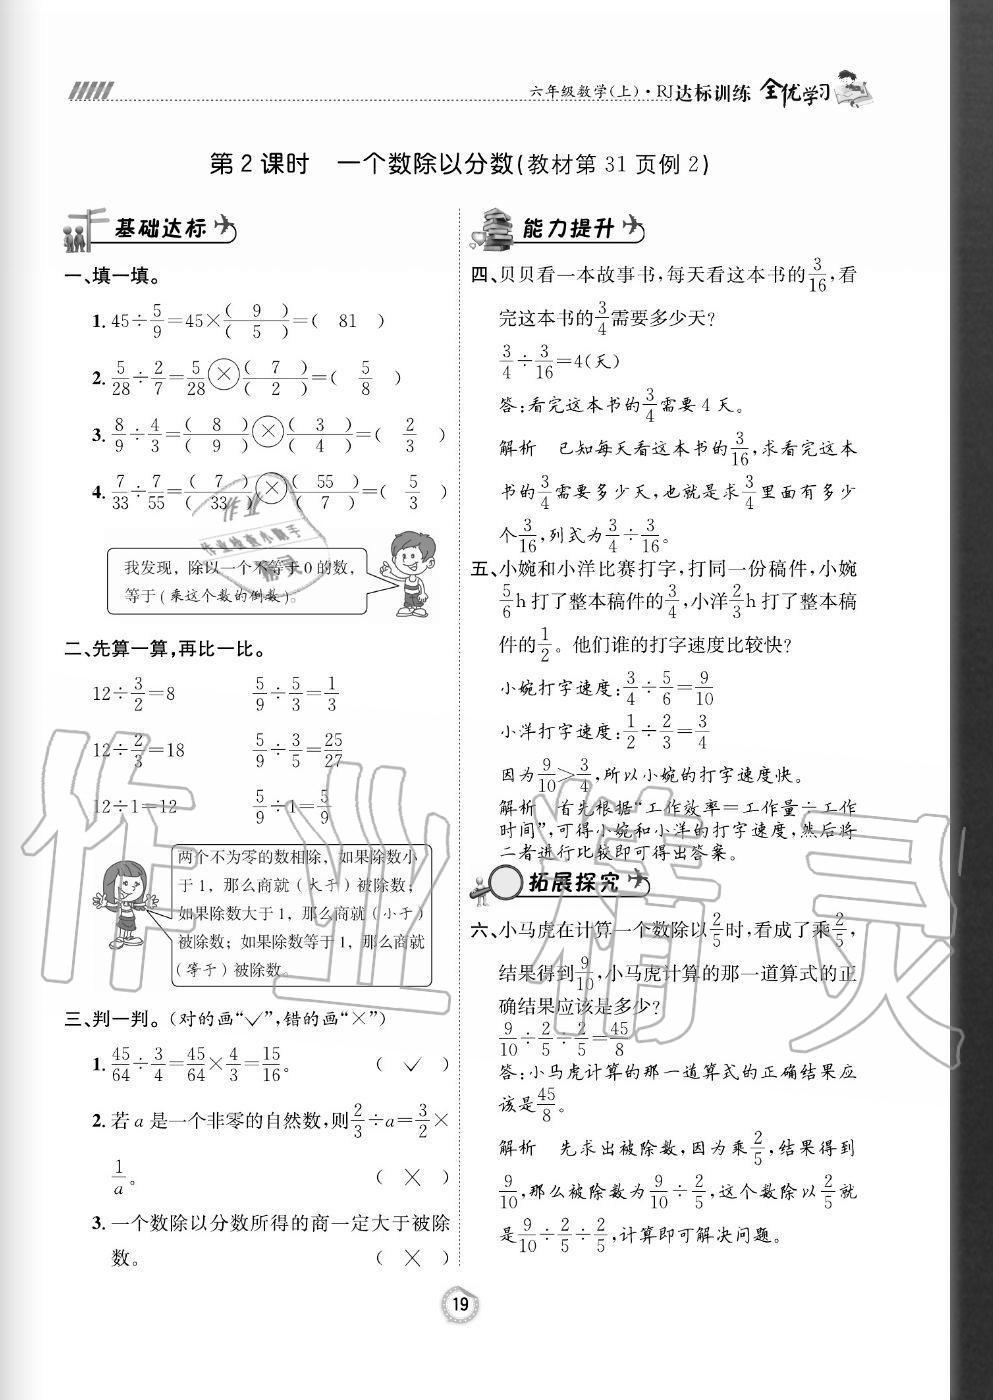 六年级数学(上)·RJ达标训练 全优学习
第2课时 一个数除以分数(教材第31页例2)
基础达标
一、填一填。
1. 45÷5/9=45×( 9 )/( 5 )=( 81 )
2. 5/28÷2/7=5/28⊗( 7 )/( 2 )=( 5/8 )
3. 8/9÷4/3=( 8 )/( 9 )⊗( 3 )/( 4 )=( 2/3 )
4. 7/33÷7/55=( 7 )/( 33 )⊗( 55 )/( 7 )=( 5/3 )
我发现，除以一个不等于0的数，
等于(乘这个数的倒数)。
二、先算一算,再比一比。
12÷3/2=8 5/9÷5/3=1/3
12÷2/3=18 5/9÷3/5=25/27
12÷1=12 5/9÷1=5/9
两个不为零的数相除，如果除数小
于1，那么商就(大于)被除数；
如果除数大于1，那么商就(小于)
被除数；如果除数等于1，那么商就
(等于)被除数。
三、判一判。(对的画“✓”,错的画“×”)
1. 45/64÷3/4=45/64×4/3=15/16。 ( ✓ )
2. 若a是一个非零的自然数,则2/3÷a=3/2×
1/a。 ( × )
3. 一个数除以分数所得的商一定大于被除
数。 ( × )
能力提升
四、贝贝看一本故事书,每天看这本书的3/16,看
完这本书的3/4需要多少天?
3/4÷3/16=4(天)
答:看完这本书的3/4需要4天。
解析 已知每天看这本书的3/16,求看完这本
书的3/4需要多少天,也就是求3/4里面有多少
个3/16,列式为3/4÷3/16。
五、小婉和小洋比赛打字,打同一份稿件,小婉
5/6h打了整本稿件的3/4,小洋2/3h打了整本稿
件的1/2。他们谁的打字速度比较快?
小婉打字速度:3/4÷5/6=9/10
小洋打字速度:1/2÷2/3=3/4
因为9/10>3/4,所以小婉的打字速度快。
解析 首先根据“工作效率=工作量÷工作
时间”,可得小婉和小洋的打字速度,然后将
二者进行比较即可得出答案。
拓展探究
六、小马虎在计算一个数除以2/5时,看成了乘2/5,
结果得到9/10,小马虎计算的那一道算式的正
确结果应该是多少?
9/10÷2/5÷2/5=45/8
答:小马虎计算的那一道算式的正确结果应
该是45/8。
解析 先求出被除数,因为乘2/5,结果得到
9/10,那么被除数为9/10÷2/5,这个数除以2/5就
是9/10÷2/5÷2/5,计算即可解决问题。
19
作业精灵
作业检查小助手
精灵